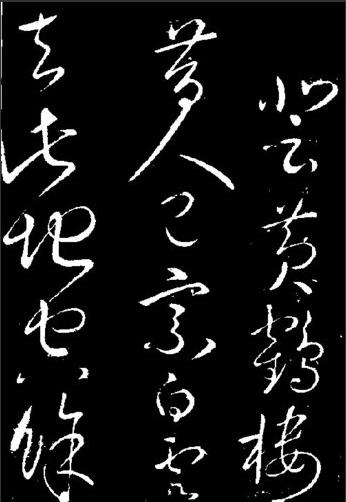 登黃鶴樓
昔人已乘白雲
去此地空餘